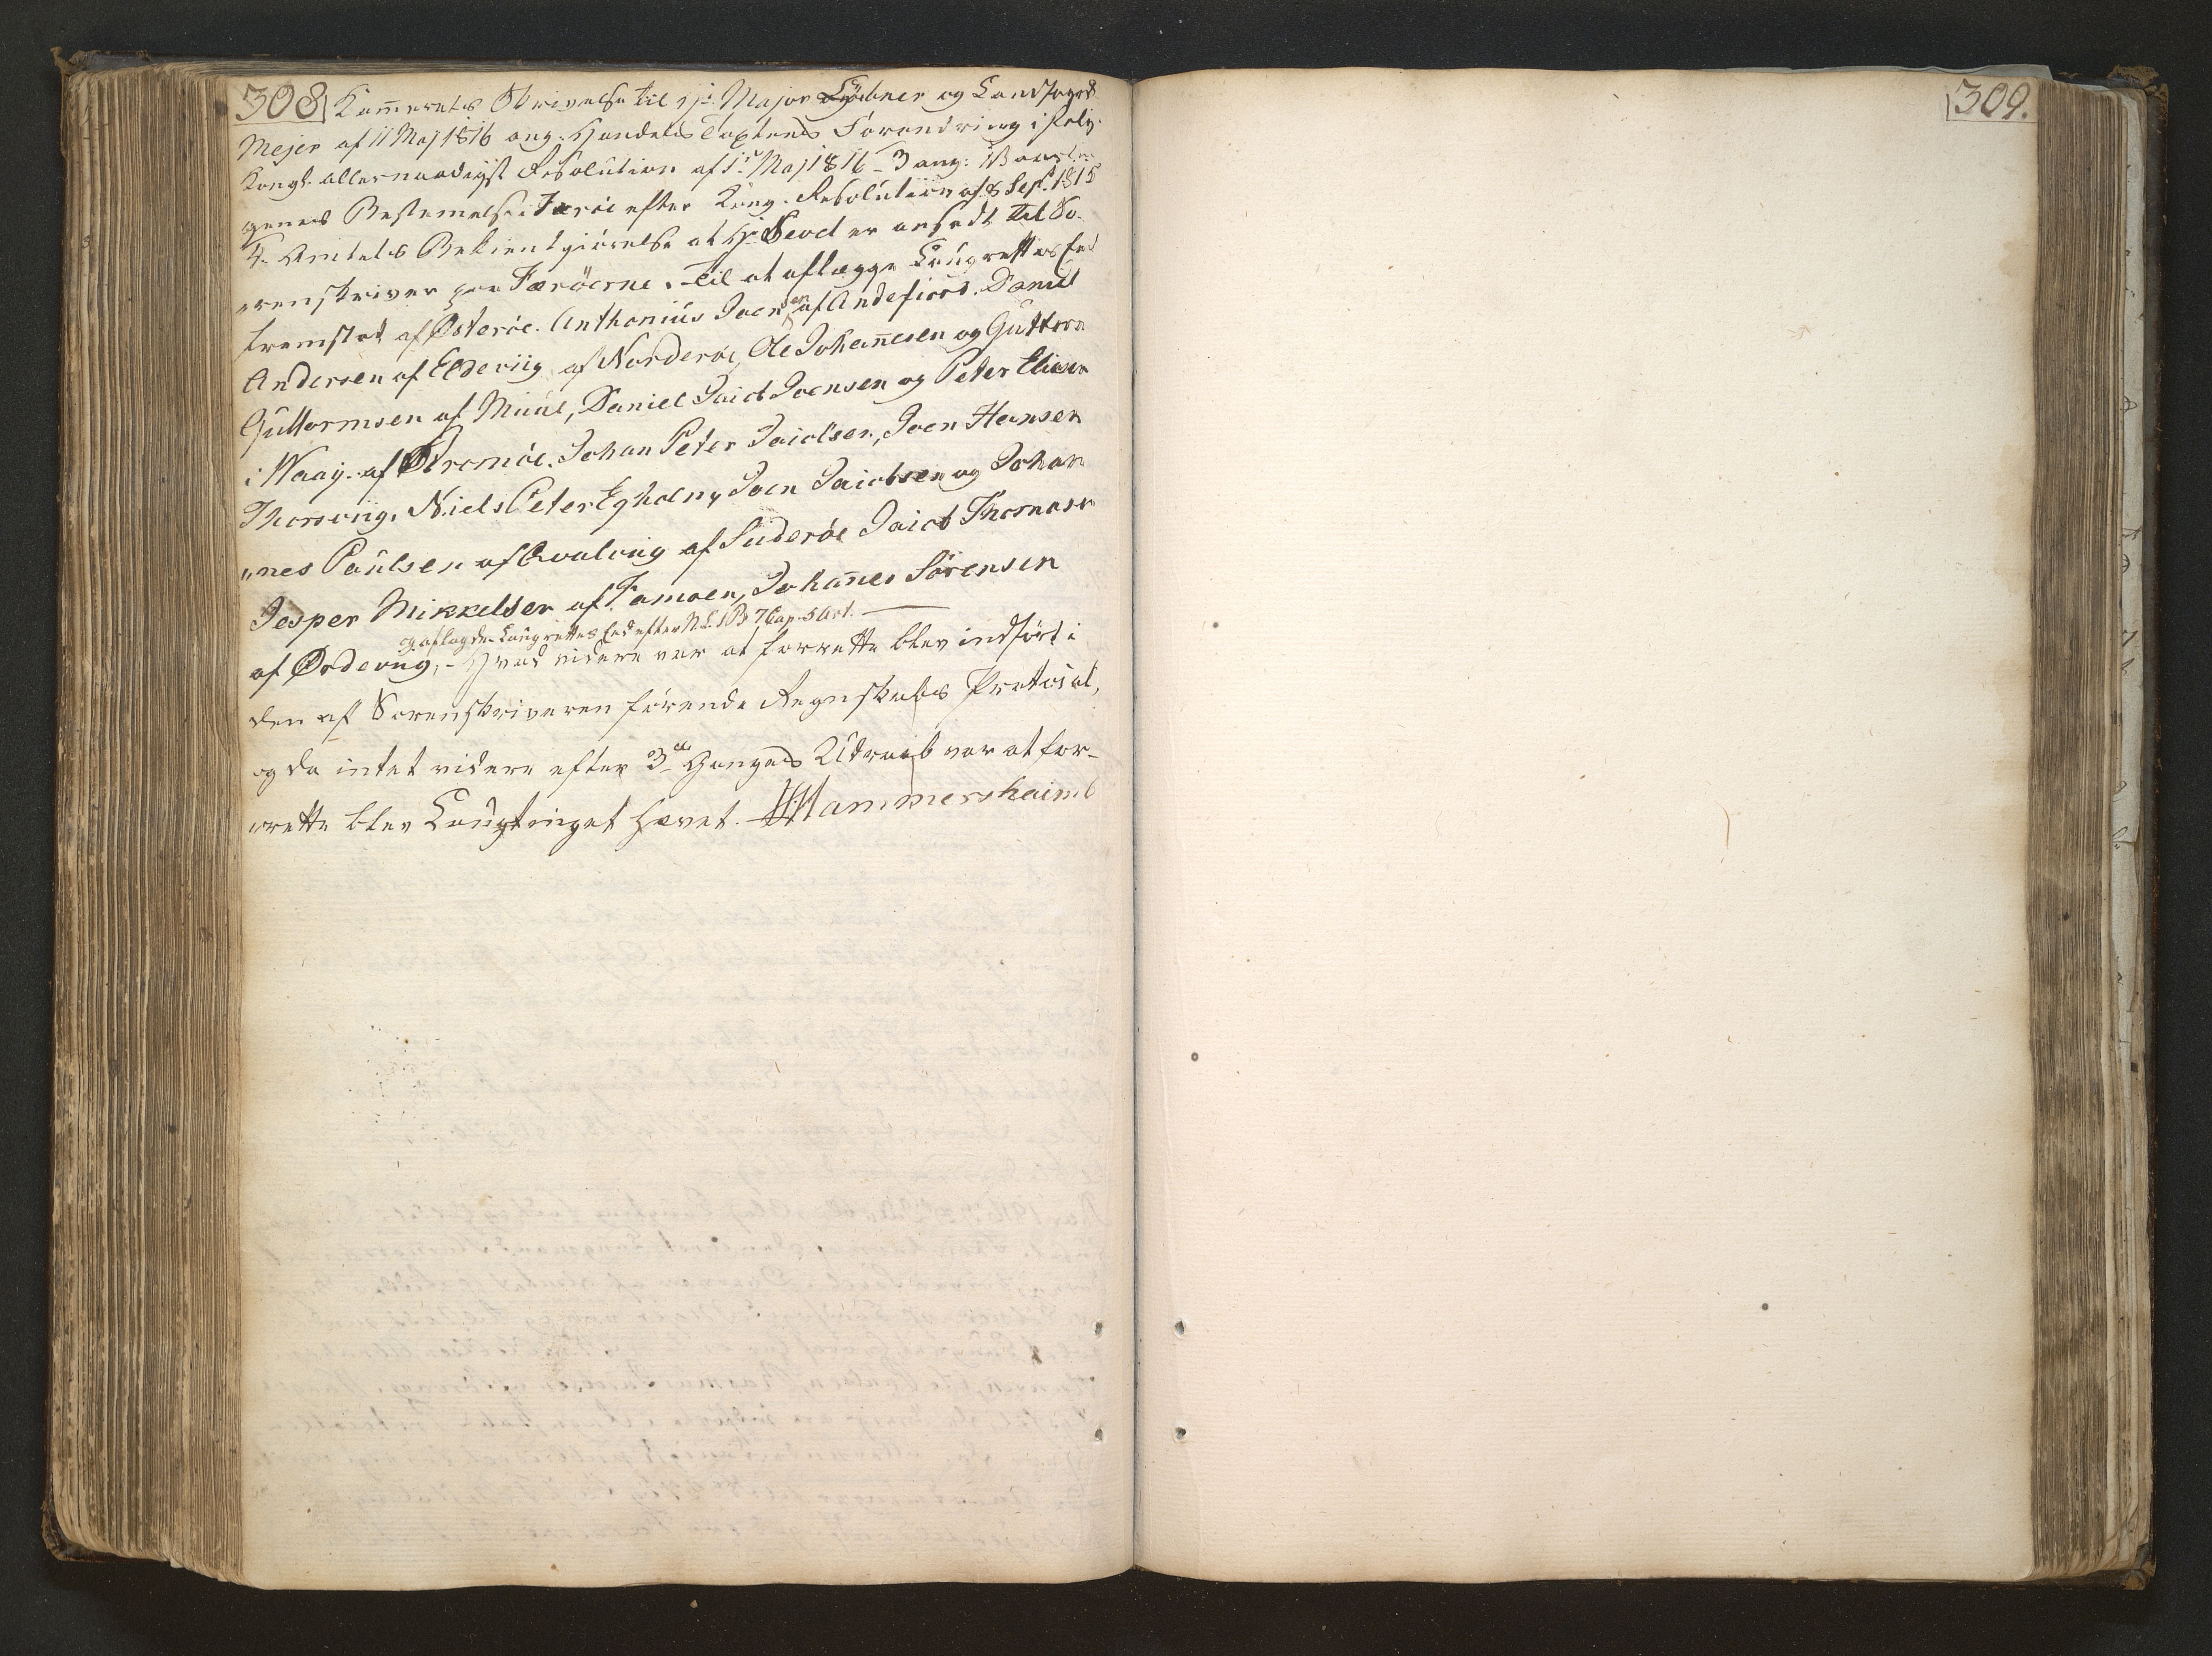 308 Kam̄erets Skrivelse til Hr. Major Løbner og Landfoged
Mejer af 11 Maj 1816 ang: Handels Taxtens Forandring i Følg.
Kongl. allernaadigst Resolution af 1. Maj 1816 - 3 ang:
genes Bestemelse i Færöe efter Kong. Resolution af 8 Sept. 1815
4. Amtets Bekientgiörelse at Hr. er ansadt til So-
renskriver paa Færöerne. - Til at aflægge Laugrettes Eed
fremstod af Österöe. Anthonius Joensen af Andefiord. Daniel
Andersen af Eldeviig af Norderöe, Ole Johan̄esen og Guttorm
Guttormsen af Muul, Daniel Jaicob Joensen og Peter Eliasen
i Waag. af Strömöe. Johan Peter Jaicobsen, Joen Hansen
Thorsviig, Niels Peter Egholm, Joen Jaicobsen og Johan
nes Paulsen af Qvalviig af Suderöe Jaicob Thomasen
Jesper Mikkelsen af Famoen, Johan̄es Sörensen
og aflagde Laugrettes Eed efter N. L. 1 B 7 Cap. 5 Art.
af Ördeviig, - Hvad videre var at forrette blev indfört i
den af Sorenskriveren förende Regnskabs Protocol,
og da intet videre efter 3de Ganges Udraab var at for-
rette blev Laugtinget hævet. Hammershaimb
309.